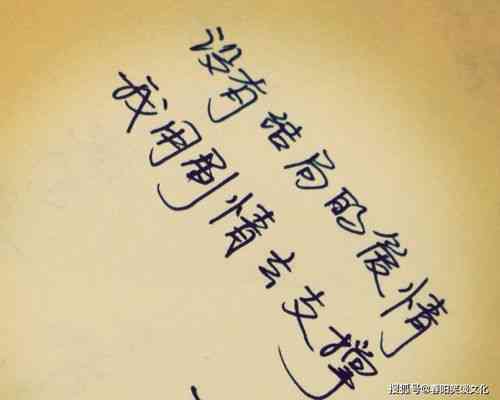 没有结局的爱情
我用剧情去支撑
搜狐号@春阳笑魂文化